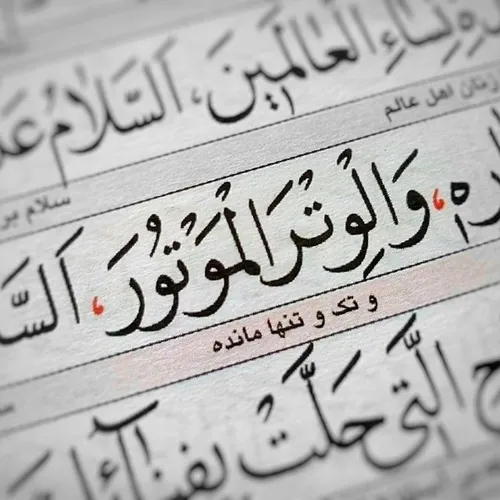 نِساءِ الْعالَمینَ، اَلسَّلامُ
زنان اهل عالم سلام بر
وَالْوِتْرَ الْمَوْتُورَ، اَلسَّ
و تک و تنها مانده
الَّتی حَلَّتْ بِفِنائِكَ